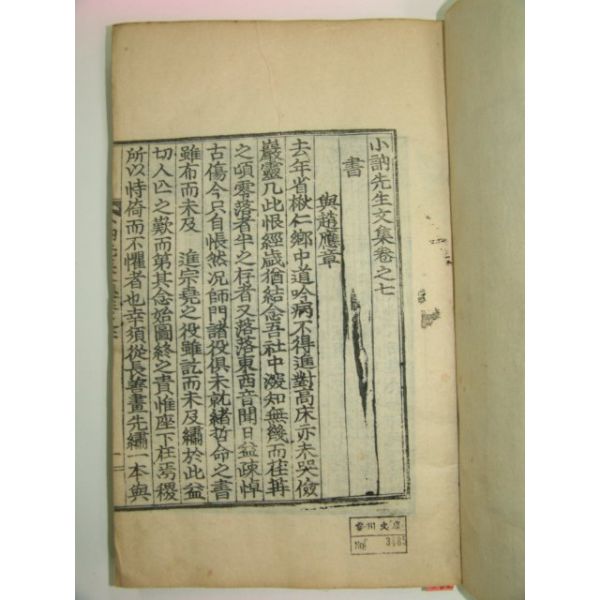 小訥先生文集卷之七
書
與趙應章
去年省楸仁鄉中道吟病不得進對高床亦未哭儉
巖靈几此恨經歲猶結念吾社中澟知無幾而荏苒
之頃零落者半之存者又落落東西音聞日益疎悼
古傷今只自悵然況師門諸役俱未就緒哲命之書
雖布而未及 進宗堯之役雖訖而未及繡於此益
切人亡之歎而第其念始圖終之責惟座下在焉稷
所以恃倚而不懼者也幸須從長善畫先繡一本與
No. 3485